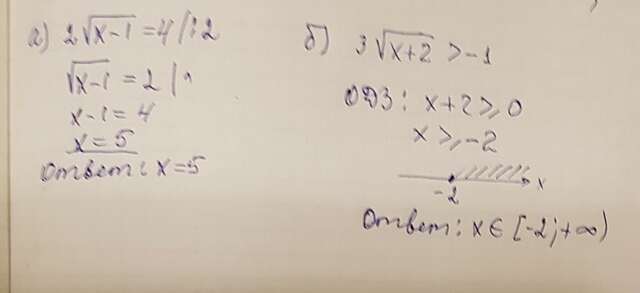 а) 2√(x-1) = 4 |:2
√(x-1) = 2 |²
x-1 = 4
x = 5
Ответ: x=5
б) 3√(x+2) > -1
ОДЗ: x+2 ⩾ 0
x ⩾ -2
-2 x
Ответ: x ∈ [-2; +∞)